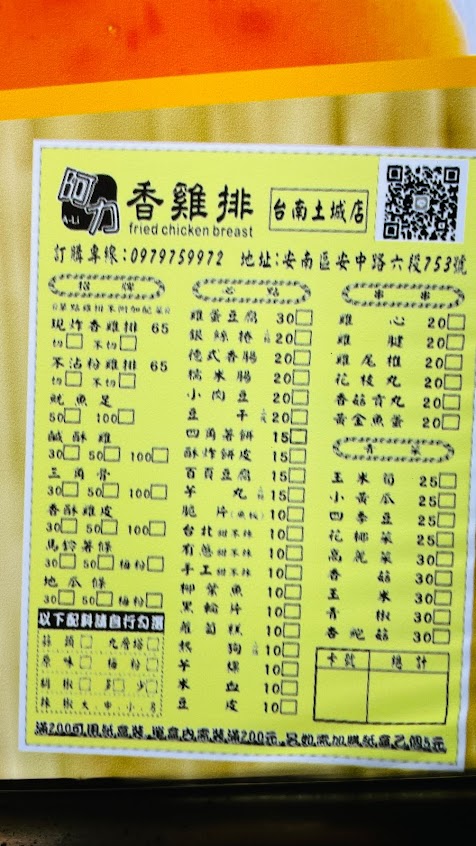 阿力
A-Li
香雞排
fried chicken breast
台南土城店
訂購專線:0979759972 地址:安南區安中路六段753號
招牌
現炸香雞排 65
切□ 不切□
不沾粉雞排 65
切□ 不切□
魷魚足
50□ 100□
鹹酥雞
30□ 50□ 100□
三角骨
30□ 50□ 100□
香酥雞皮
30□ 50□ 100□
馬鈴薯條
30□ 50□ 梅粉□
地瓜條
30□ 50□ 梅粉□
以下配料請自行勾選
蒜頭□ 九層塔□
原味□ 梅粉□
胡椒□ 多□ 少□
辣椒 大、中、小、
必點
雞蛋豆腐 30□
銀絲捲 20□
德式香腸 20□
糯米腸 20□
小肉豆 20□
豆干 20□
四角薯餅 15□
酥炸餅皮 15□
百頁豆腐 15□
芋丸 15□
脆片(魚板) 10□
台北甜不辣 10□
有蔥甜不辣 10□
手工甜不辣 10□
柳葉魚 10□
黑輪片 10□
蘿蔔糕 10□
熱狗 10□
芋粿 10□
米血 10□
豆皮 10□
串串
雞心 20□
雞腱 20□
雞尾椎 20□
花枝丸 20□
香菇貢丸 20□
黃金魚蛋 20□
青菜
玉米筍 25□
小黃瓜 25□
四季豆 25□
花椰菜 25□
高麗菜 30□
香菇 30□
玉米 30□
青椒 30□
杏鮑菇 30□
卡號 總計
滿200可用紙盒裝,單盒內需裝滿200元,另如需加購紙盒乙個5元